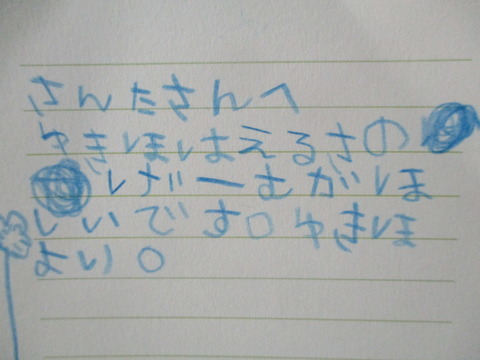 さんたさんへ
ゆきほはえるさの
げーむがほ
しいです。ゆきほ
より。